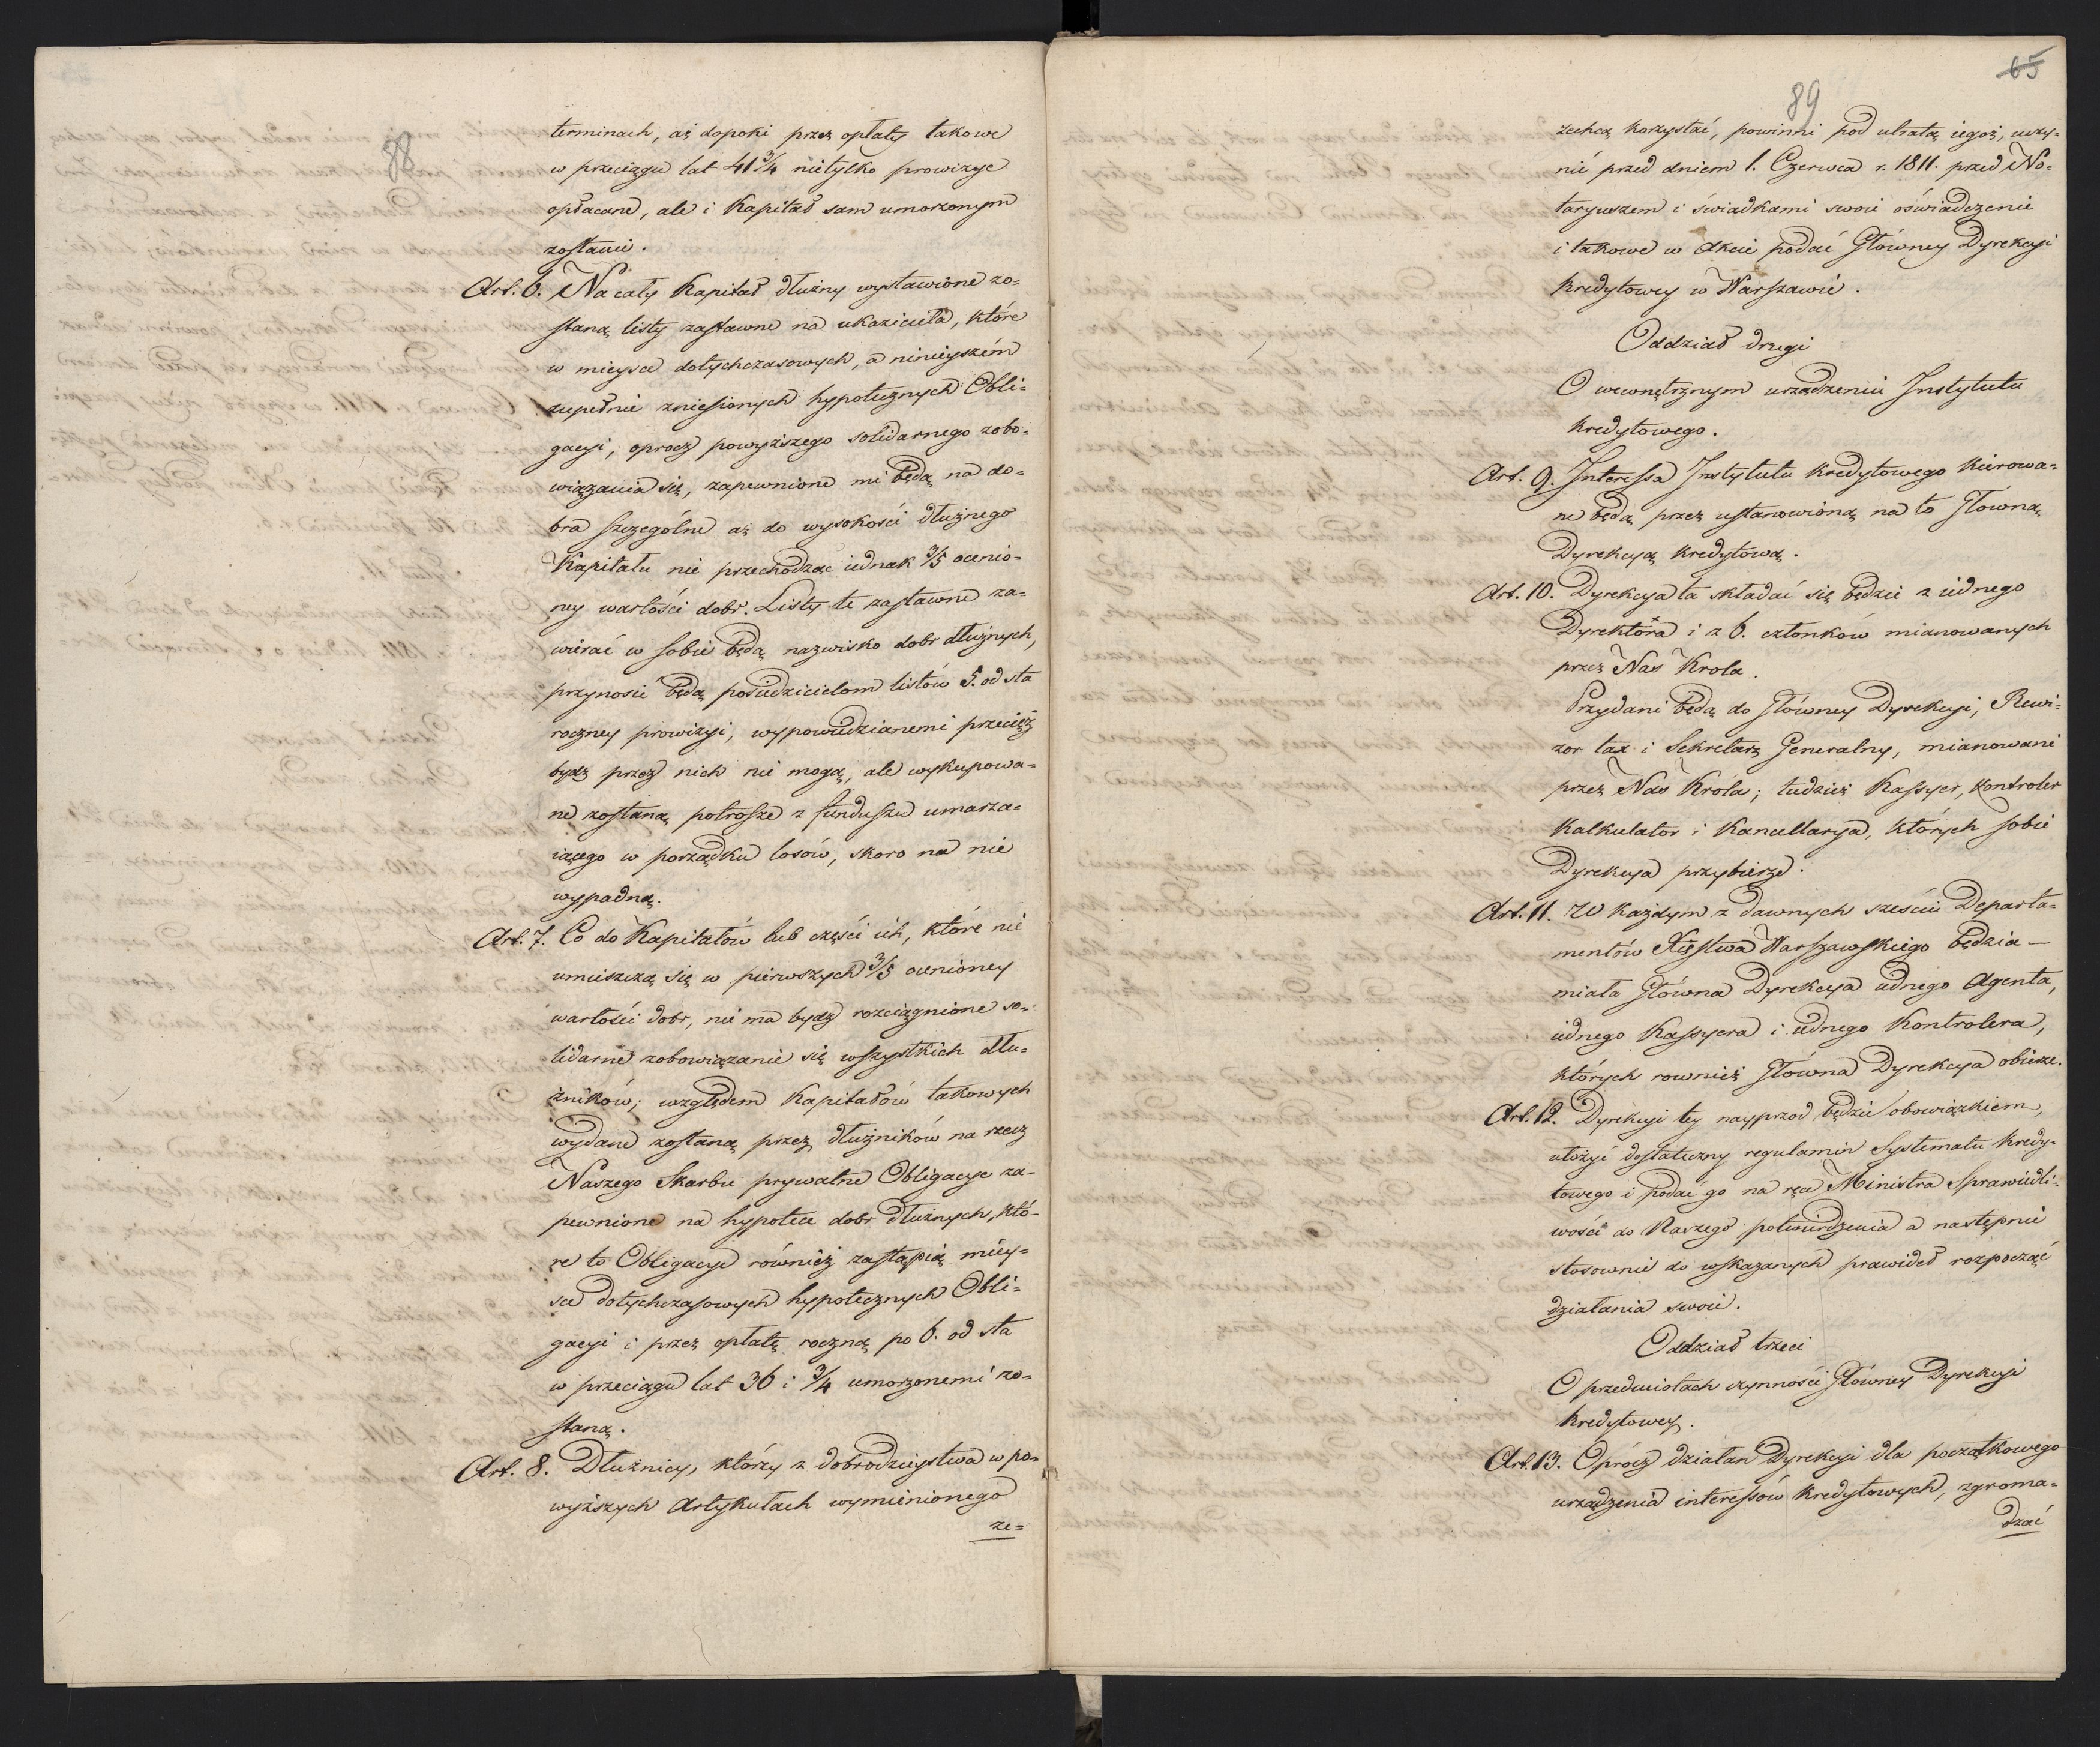 88
terminach, aż dopoki przez opłaty takowe
w przeciągu lat 41 3/4 nietylko prowizye
opłacane, ale i Kapitał sam umorzonym
zostanie.
Art. 6. Na cały Kapitał dłużny wystawione zo=
staną listy zastawne na ukaziciela, które
w mieysce dotychczasowych, a ninieyszém
zupełnie zniesionych hypotecznych Obli=
gacyi, oprocz powyższego solidarnego zobo=
wiązania się, zapewnione mi będą na do=
bra szczególne aż do wysokości dłużnego
Kapitału nie przechodząc iednak 3/5 ocenio=
ney wartości dobr. Listy te zastawne za=
wierać w sobie będą nazwisko dobr dłużnych,
przynosić będą posiedzicielom listów 5. od sta
roczney prowizyi, wypowiedzianemi przecięż
bydź przez nich nie mogą, ale wykupowa=
ne zostaną potrosze z funduszu umarza=
iącego w porządku losów, skoro na nie
wypadną.
Art. 7. Co do Kapitałów lub części ich, które nie
umieszczą się w pierwszych 3/5 ocenioney
wartości dobr, nie ma bydź rozciągnione so=
lidarne zobowiązanie się wszystkich dłu=
żników; względem Kapitałów takowych
wydane zostaną przez dłużników na rzecz
Naszego Skarbu prywatne Obligacye za=
pewnione na hypotece dobr dłużnych, któ=
re to Obligacye również zastąpią miey=
sce dotychczasowych hypotecznych Obli=
gacyi i przez opłatę roczną po 6. od sta
w przeciągu lat 36 i 3/4 umorzonemi zo=
staną.
Art. 8. Dłużnicy, którzy z dobrodzieystwa w po=
wyższych Artykułach wymienionego
ze=
65
89
zechcą korzystać, powinni pod utratą iegoż, uczy=
nić przed dniem 1. Czerwca r. 1811. przed No=
taryuszem i świadkami swoie oświadczenie
i takowe w Akcie podać Główney Dyrekcyi
Kredytowey w Warszawie.
Oddział drugi
O wewnętrznym urządzeniu Instytutu
Kredytowego.
Art. 9. Interessa Instytutu Kredytowego kierowa=
ne będą przez ustanowioną na to Głowną
Dyrekcyą Kredytową.
Art. 10. Dyrekcya ta składać się będzie z iednego
Dyrektora i z 6. członków mianowanych
przez Nas Krola.
Przydani będą do Główney Dyrekcyi, Rewi=
zor tax i Sekretarz Generalny, mianowani
przez Nas Króla; tudzież Kassyer, Kontroler
Kalkulator i Kancellarya, których sobie
Dyrekcya przybierze.
Art. 11. W każdym z dawnych sześciu Departa=
mentów Xięstwa Warszawskiego będzie —
miała Główna Dyrekcya iednego Agenta,
iednego Kassyera i iednego Kontrolera,
których rownież Główna Dyrekcya obierze.
Art. 12. Dyrekcyi tey nayprzod będzie obowiązkiem,
ułożyć dostateczny regulamin Systematu kredy=
towego i podać go na ręce Ministra Sprawiedli=
wości do Naszego potwierdzenia a następnie
stosownie do wskazanych prawideł rozpocząć
działania swoie.
Oddział trzeci
O przedmiotach czynności Główney Dyrekcyi
Kredytowey.
Art. 13. Oprócz działań Dyrekcyi dla początkowego
urządzenia interessów kredytowych, zgroma=
dzać